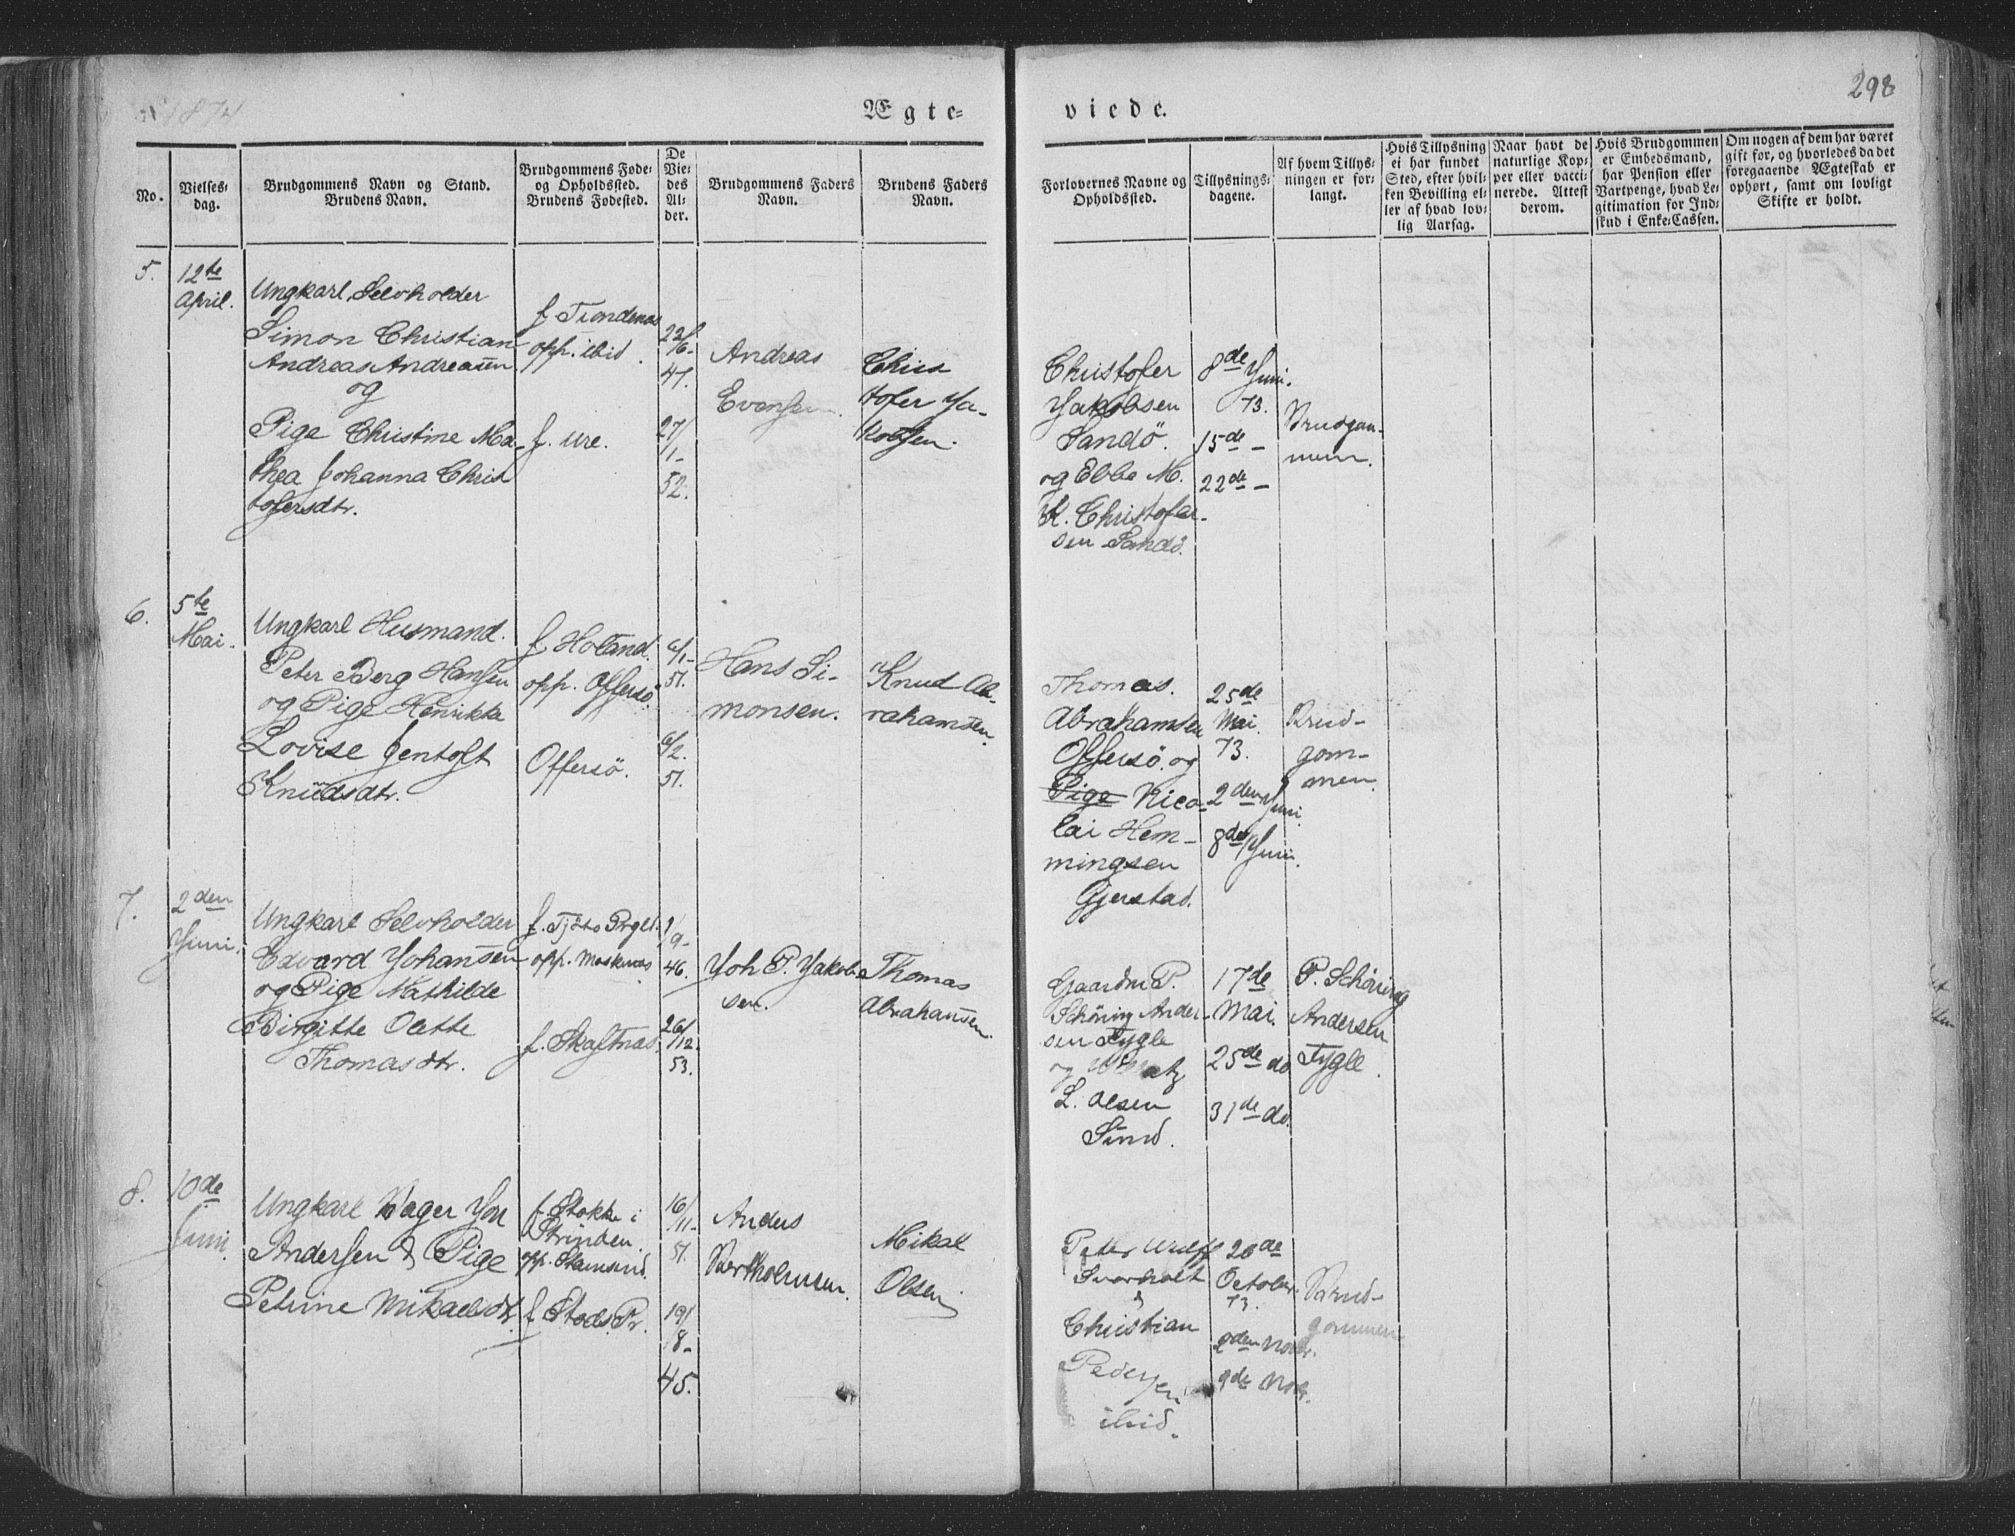 1874
Ægte-
viede.
298
No.
Vielses-
dag.
Brudgommens Navn og Stand.
Brudens Navn.
Brudgommens Føde-
og Opholdssted.
Brudens Fødested.
De
Vie-
des
Al-
der.
Brudgommens Faders
Navn.
Brudens Faders
Navn.
Forlovernes Navne og
Opholdssted.
Tillysnings-
dagene.
Af hvem Tillys-
ningen er for-
langt.
Hvis Tillysning
ei har fundet
Sted, efter hvil-
ken Bevilling el-
ler af hvad lov-
lig Aarsag.
Naar havt de
naturlige Kop-
per eller vacci-
nerede. Attest
derom.
Hvis Brudgommen
er Embedsmand,
har Pension eller
Vartpenge, hvad Le-
gitimation for Ind-
skud i Enke-Cassen.
Om nogen af dem har været
gift før, og hvorledes da det
foregaaende Ægteskab er
ophørt, samt om lovligt
Skifte er holdt.
5.
12te
April.
Ungkarl Selvholder
Simon Christian
Andreas Andreasen
og
Pige Christine Ma-
thea Johanna Chris
tofersdtr.
f. Trondenæs
opp. ibid.
f. Ure.
22/6-
47.
27/
1-
52.
Andreas
Evensen.
Chris
tofer Ja-
kobsen.
Christofer
Jakobsen
Sandö.
og Ebbe M.
K. Christofer-
sen Sandö.
8de Juni.
73.
15de -
22de -
Brudgom-
men.
6.
5te
Mai.
Ungkarl Husmand.
Peter Berg Hansen
og Pige Henrikke
Lovise Jentoft
Knudsdtr.
f. Holand.
opp. Offersö
Offersö.
6/1-
51.
6/2.
51.
Hans Si-
monsen.
Knud Ab-
rahamsen.
Thomas.
Abrahamsen
Offersö. og
Pige Nico-
lai Hem-
mingsen
Gjerstad.
25de
Mai
73.
2den Juni
8de Juni.
Brud-
gom-
men.
7.
2den
Juni.
Ungkarl Selvholder
Edvard Johansen
og Pige Mathilde
Birgitte Olette
Thomasdtr.
f. Tjötö Prgld.
opp. Moskenæs
f. Skaftnæs.
1/
9-
46.
26/
12-
53.
Joh P. Jakob-
sen.
Thomas
Abrahamsen.
Gaardm P.
Schöning Ander-
sen Tygle
og
L. Olsen
Sund.
17de
Mai.
25de do
31de do.
P. Schöning
Andersen
Tygle.
8.
10de
Juni.
Ungkarl Bager Jon
Andersen & Pige
Petrine Mikaelsdtr.
f. Stokke i
Strinden.
opp. Stamsund.
f. Stods Pr.
16/
11-
51.
19/
8-
45.
Anders
Bartholmsen.
Mikal
Olsen
Peter Wulff
Svarholt
&
Christian
Pedersen
ibid.
26de
October.
73.
2den Novbr.
9de Novbr.
Brud-
gommen